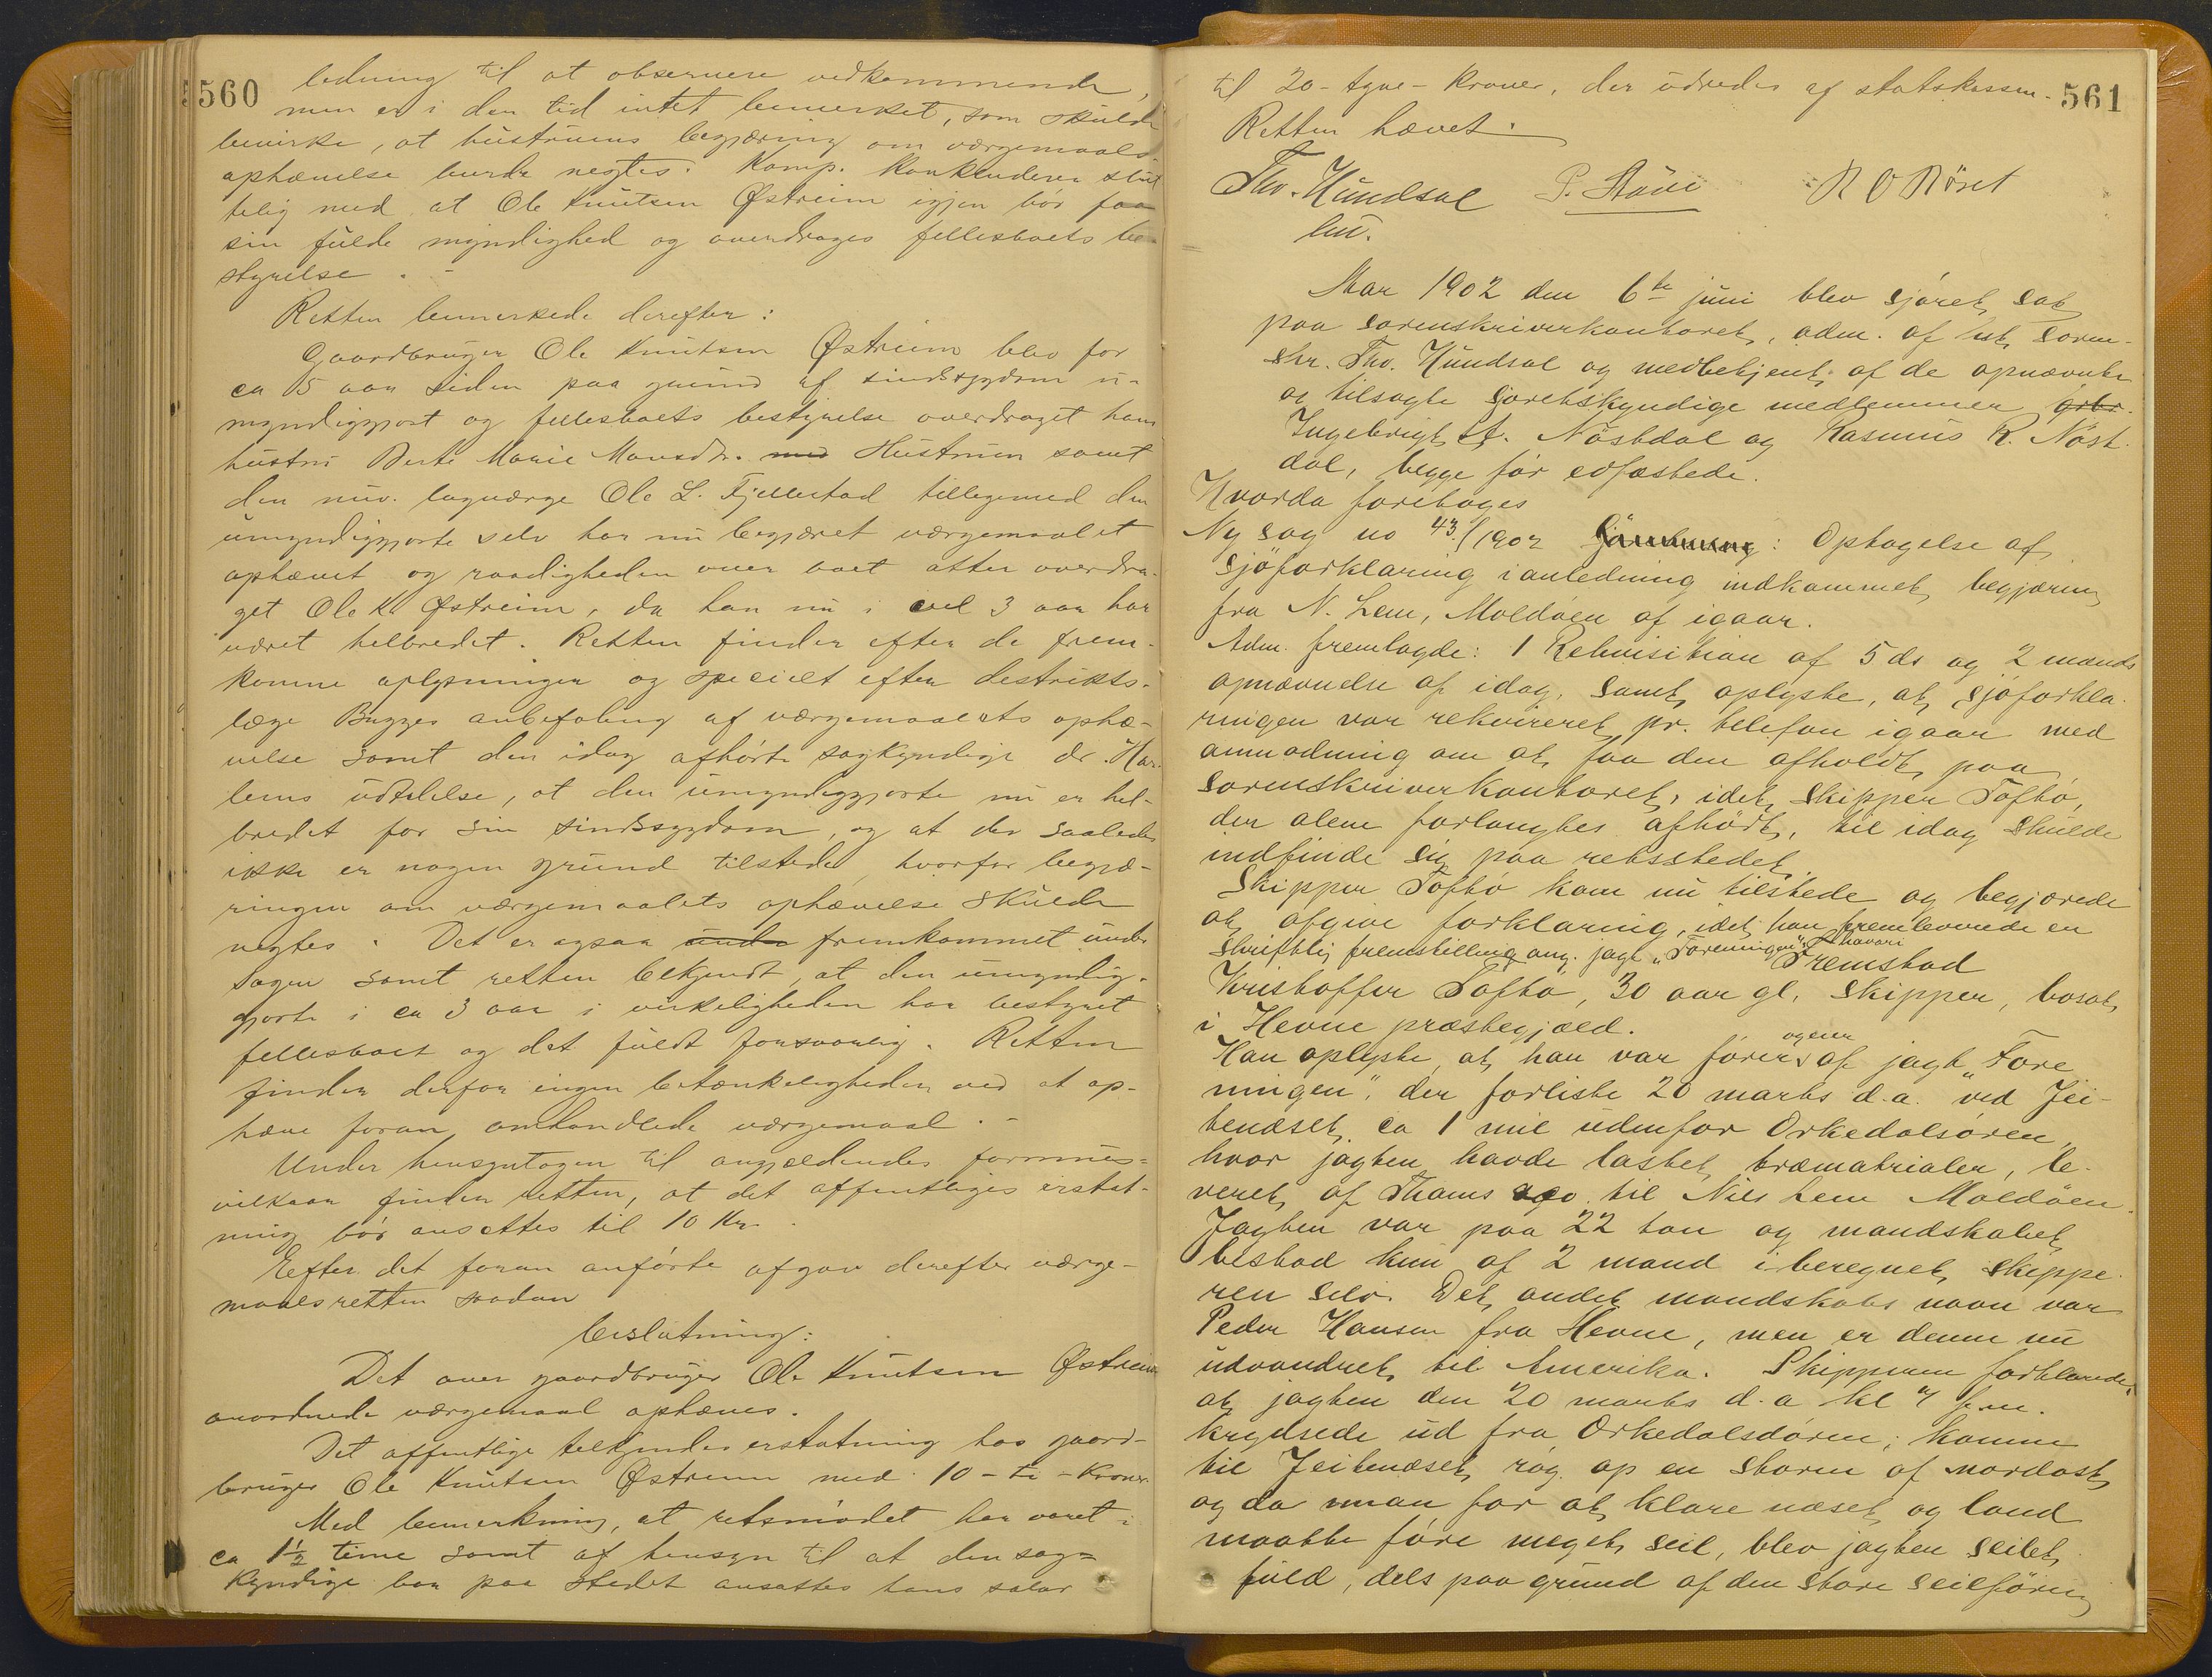 560
ledning til at observere vedkommende,
men er i den tid intet bemerket, som skulde
bevirke, at hustruens begjæring om værgemaals-
ophævelse burde negtes. Komp. konkluderer slut
telig med at Ole Knutsen Østreim igjen bør faa
sin fulde myndighed og overdrages fellesboets be-
styrelse.
Retten bemerkede derefter:
Gaardbruger Ole Knutsen Østreim blev for
ca 15 aar siden paa grund af sindssygdom u-
myndiggjort og fellesboets bestyrelse overdraget hans
hustru Berte Marie Monsdtr. med Hustruen samt
den nuv. lagværge Ole L. Fjellestad tillegemed den
umyndiggjorte selv har nu begjæret værgemaalet
ophævet og raadigheden over boet atter overdra-
get Ole K. Østreim, da han nu i vel 3 aar har
været helbredet. Retten finder efter de frem-
komne oplysninger og specielt efter destrikts-
læge Bugges anbefaling af værgemaalets ophæ-
velse samt den idag afhørte sagkyndige dr. Har-
lems udtalelse, at den umyndiggjorte nu er hel-
bredet for sin sindssygdom, og at der saaledes
ikke er nogen grund tilstede, hvorfor begjæ-
ringen om værgemaalets ophævelse skulde
negtes. Det er ogsaa under fremkommet under
sagen samt retten bekjendt, at den umyndig-
gjorte i ca 3 aar i virkeligheden har bestyret
fellesboet og det fuldt forsvarlig. Retten
finder derfor ingen betænkeligheder ved at op-
hæve foran omhandlede værgemaal.
Under hensyntagen til angjældendes formues-
vilkaar finder retten, at det offentliges erstat-
ning bør ansættes til 10 Kr.
Efter det foran anførte afgav derefter værge-
maalsretten saadan
beslutning:
Det over gaardbruger Ole Knutsen Østreim
anordnede værgemaal ophæves.
Det offentlige tilkjendes erstatning hos gaard-
bruger Ole Knutsen Østreim med 10 - ti - Kroner.
Med bemerkning, at retsmødet har varet i
ca 1½ time samt af hensyn til at den sag-
kyndige bor paa stedet ansattes hans salær
561
til 20 - tyve - Kroner, der udredes af statskassen.
Retten hævet.
Tho. Hundsal P. Støve R O Røset
Aar 1902 den 6te juni blev sjøret sat
paa sorenskriverkontoret, adm. af soren-
skr. Tho. Hundsal og medbetjent af de opnævnte
og tilsagte søretskyndige medlemmer grbr.
Ingebrigt A. Nøstdal og Rasmus R. Nøst-
dal, begge før edfæstede.
Hvorda foretoges
Ny sag no 43/1902 : Optagelse af
sjøforklaring i anledning indkommet begjæring
fra N. Lem, Moldøen af igaar.
Adm. fremlagde: 1 Rekvisition af 5 ds og 2 mænds
opnævnelse af idag, samt oplyste, at sjøforkla-
ringen var rekvireret pr. telefon igaar med
anmodning om at faa den afholdt paa
sorenskriverkontoret, idet skipper Toftø,
der alene forlangtes afhørt, til idag skulde
indfinde sig paa retsstedet.
Skipper Toftø kom nu tilstede og begjærede
at afgive forklaring, idet han fremleverede en
skriftlig fremstilling ang. jagt "Foreningen"s havari
Fremstod
Kristoffer Toftø, 30 aar gl, skipper, bosat
i Hevne præstegjæld.
og eier
Han oplyste, at han var fører af jagt "Fore
ningen", der forliste 20 marts d.a. ved Jei-
tenæset ca 1 mil udenfor Orkedalsøren,
hvor jagten havde lastet træmatrialer, le-
veret af Thams & co. til Nils Lem Moldøen.
Jagten var paa 22 ton og mandskabet
bestod kun af 2 mand iberegnet skippe-
ren selv. Det andet mandskabs navn var
Peder Hansen fra Hevne, men er denne nu
udvandret til Amerika. Skipperen forklarede,
at jagten den 20 marts d.a kl 4 f.m.
krydsede ud fra Orkedalsdøren; komne
til Jeitenæset røg op en storm af nordost
og da man for at klare næset og land
maatte føre meget seil, blev jagten seilet
fuld, dels paa grund af den store seilføring